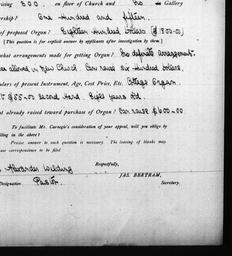 rising 300. on floor of Church and No in Gallery
ership? One Hundred and fifteen.
of proposed Organ? Eighteen Hundred Dollars ($1800.00)
[This question is for explicit answer by applicants after investigation by them.]
what arrangements made for getting Organ? No definite arrangement.
allowed in New Church. Can raise Six Hundred dollars
ulars of present Instrument, Age, Cost Price, Etc. Cottage Organ.
$55.00 Second Hand. Eight years old.
nt already raised toward purchase of Organ? Can raise $600.00
To facilitate Mr. Carnegie's consideration of your appeal, will you oblige by
filling in the above?
Please answer to each question is necessary. The leaving of blanks may
correspondence to be filed
Respectfully,
Alexander
JAS. BERTRAM,
Designation Pastor.
Secretary.